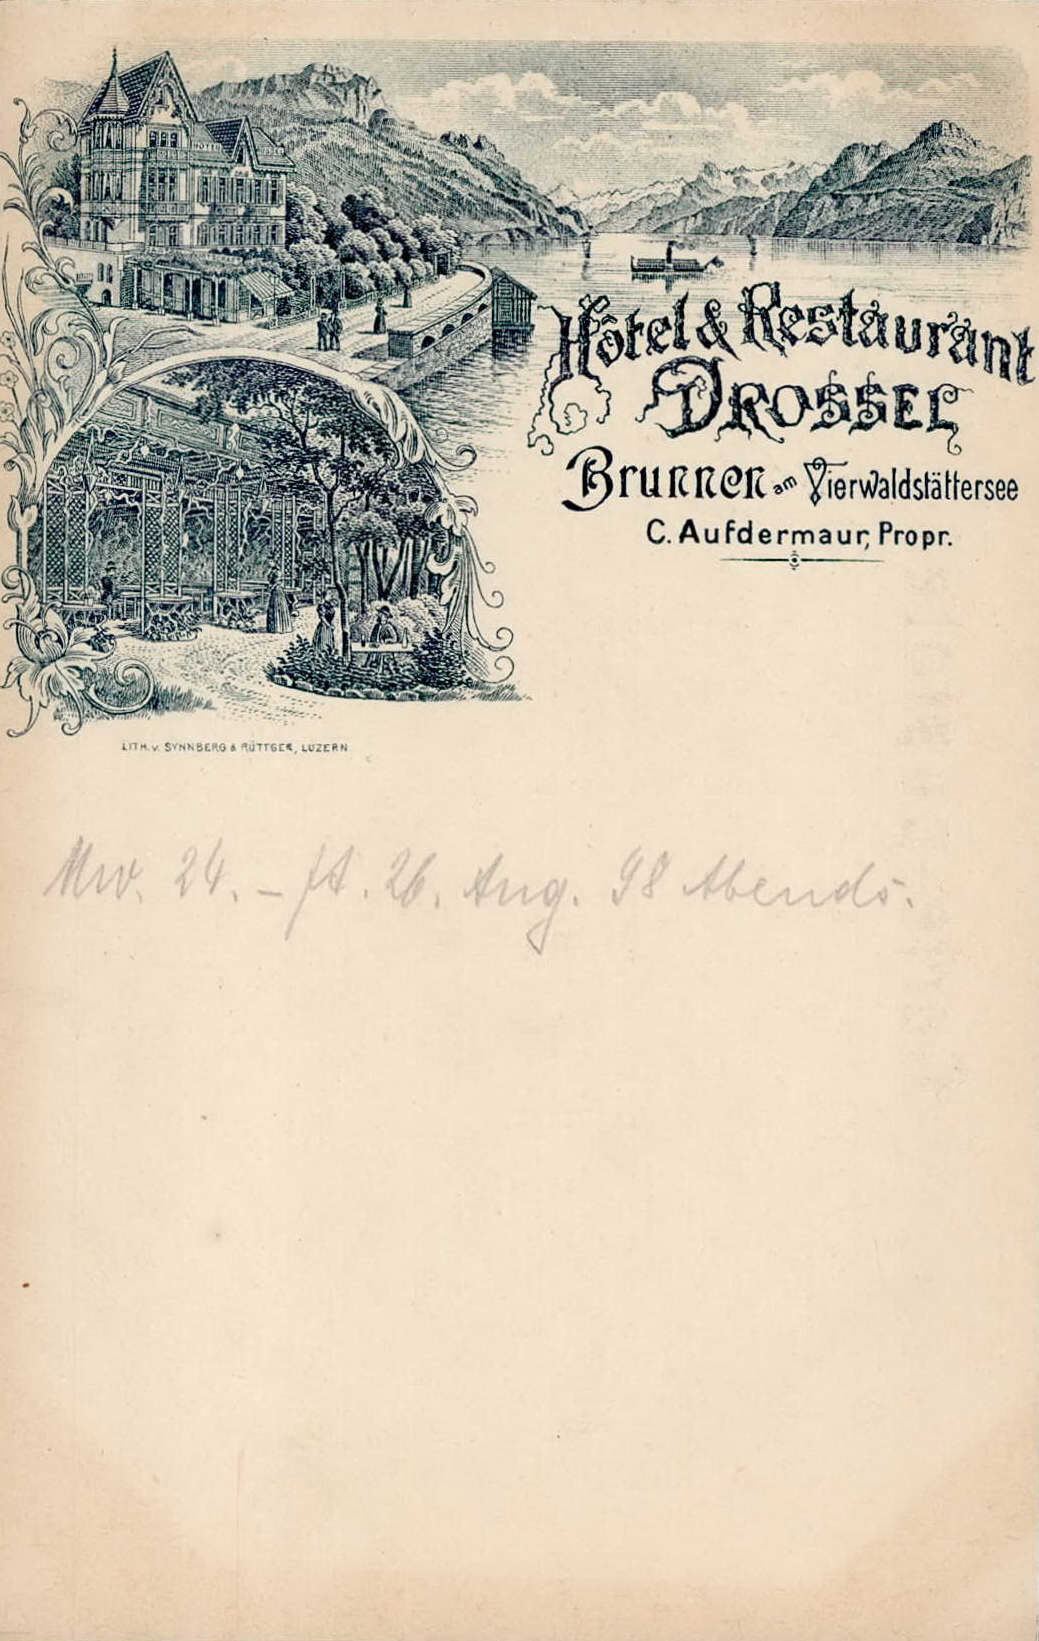 Hôtel & Restaurant
DROSSEL
Brunnen am Vierwaldstättersee
C. Aufdermaur, Propr.
LITH. v. SYNNBERG & RÜTTGER, LUZERN
24. – 26. Aug. 98 Abends.